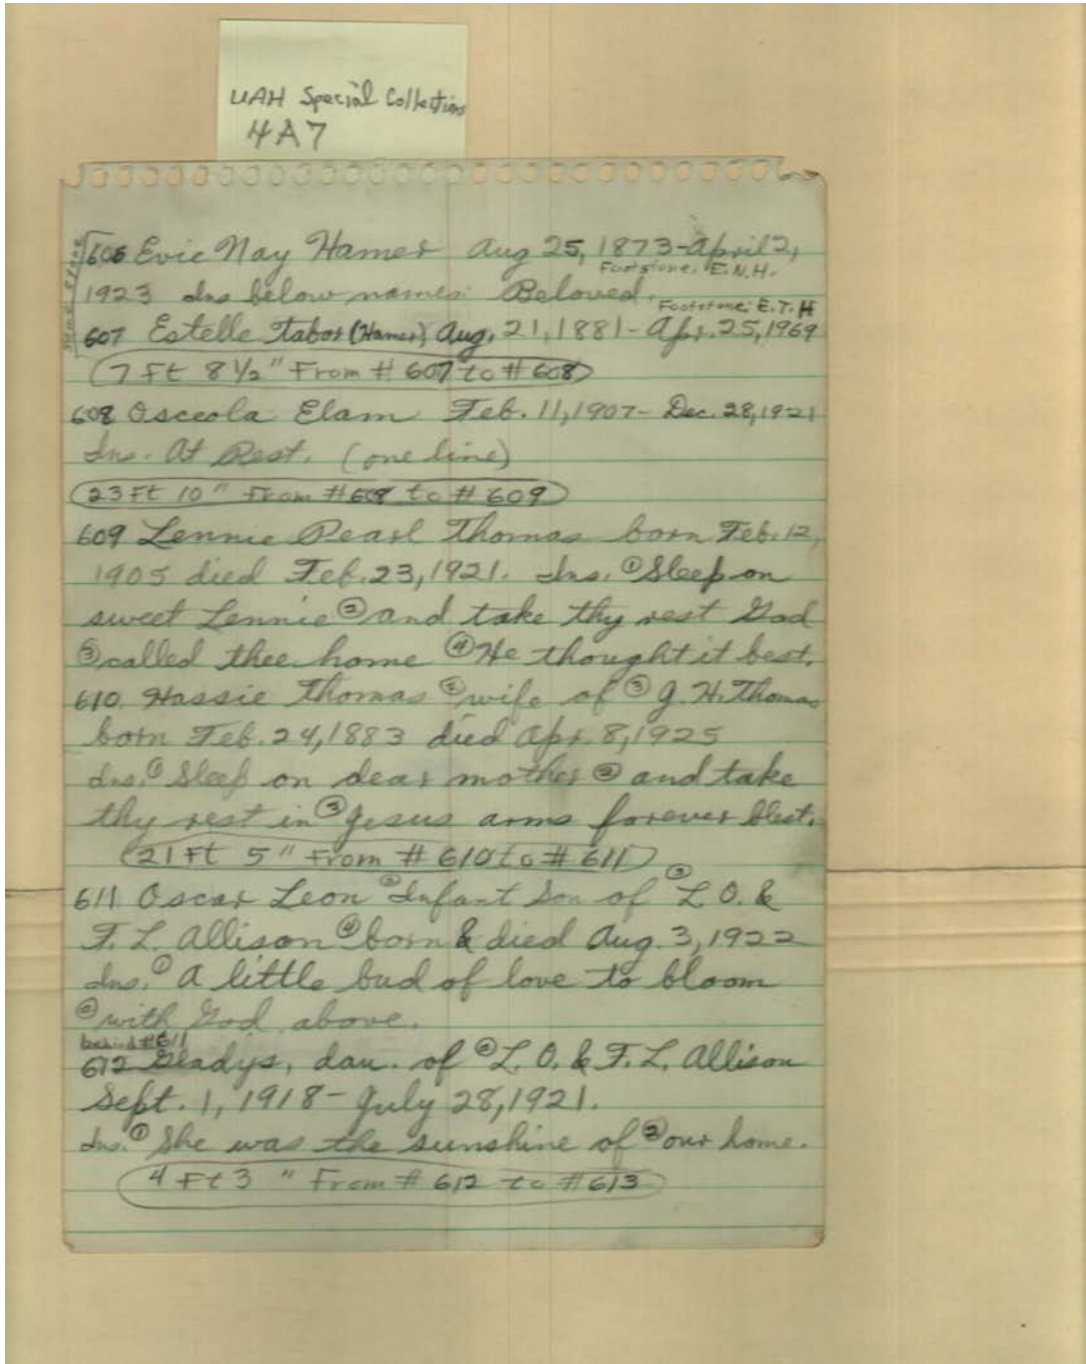 UAH Special Collections
4A7
606 Evie Nay Hamer Aug 25, 1873-April 2,
Footstone: E.N.H.
1923 Ins below names: Beloved.
Footstone: E.T.H
607 Estelle Tabor (Hamer) Aug. 21, 1881-Apr. 25, 1969
7 Ft 8 1/2" From # 607 to # 608
608 Osceola Elam Feb. 11, 1907- Dec. 28, 1921
Ins. At Rest. (one line)
23 Ft 10" From # 608 to # 609
609 Lennie Pearl Thomas born Feb. 12,
1905 died Feb. 23, 1921. Ins. ① Sleep on
sweet Lennie ② and take thy rest God
③ called thee home ④ He thought it best.
610 Hassie Thomas ② wife of ③ G. H. Thomas
born Feb. 24, 1883 died Apr. 8, 1925
Ins. ① Sleep on dear mother ② and take
thy rest in ③ Jesus arms forever blest.
21 Ft 5" From # 610 to # 611
611 Oscar Leon ② Infant Son of ③ L. O. &
F. L. Allison ④ born & died Aug. 3, 1922
Ins. ① A little bud of love to bloom
② with God above.
behind #611
612 Gladys, dau. of ② L. O. & F. L. Allison
Sept. 1, 1918- July 28, 1921.
Ins. ① She was the sunshine of ② our home.
4 Ft 3" From # 612 to # 613